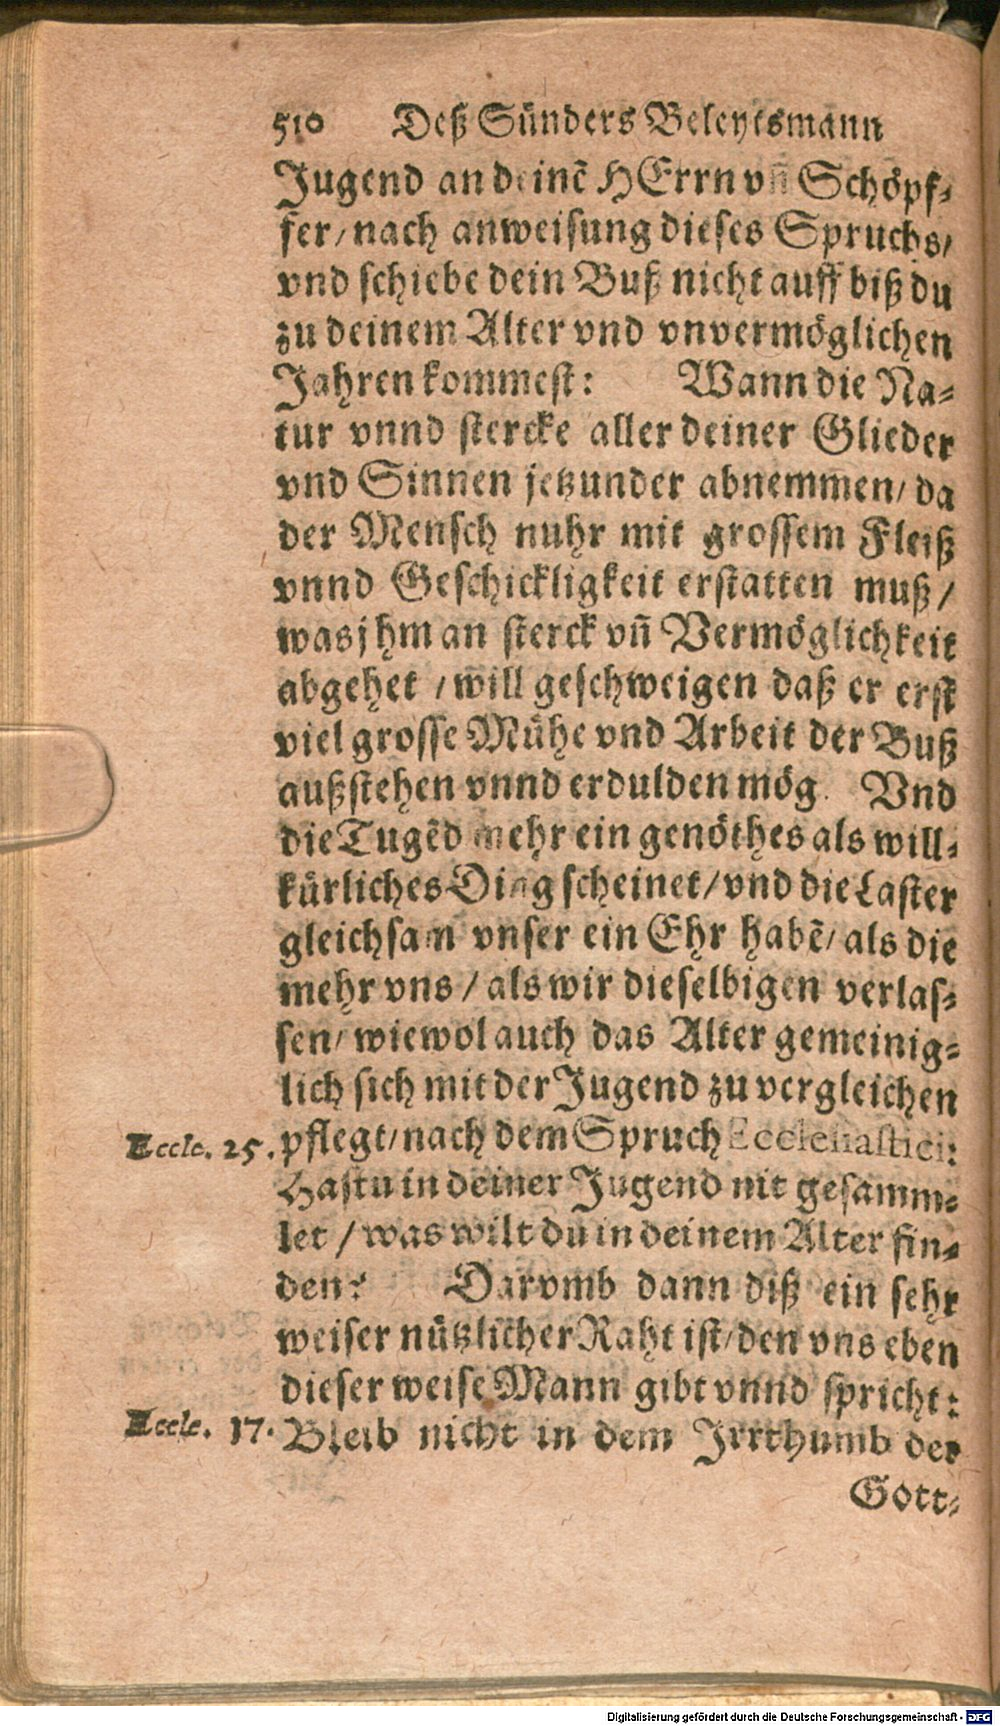 510 Deß Sünders Beleytsmann
Jugend an deinẽ HErrn vñ Schöpf-
fer/ nach anweisung dieses Spruchs/
vnd schiebe dein Buß nicht auff biß du
zu deinem Alter vnd vnvermöglichen
Jahren kommest: Wann die Na-
tur vnnd stercke aller deiner Glieder
vnd Sinnen jetzunder abnemmen/ da
der Mensch nuhr mit grossem Fleiß
vnnd Geschickligkeit erstatten muß/
was jhm an sterck vñ Vermöglichkeit
abgehet / will geschweigen daß er erst
viel grosse Mühe vnd Arbeit der Buß
außstehen vnnd erdulden mög. Vnd
die Tugẽd mehr ein genöthes als will-
kürliches Ding scheinet/ vnd die Laster
gleichsam vnser ein Ehr habẽ/ als die
mehr vns / als wir dieselbigen verlas-
sen/ wiewol auch das Alter gemeinig-
lich sich mit der Jugend zu vergleichen
Eccle. 25. pflegt/ nach dem Spruch Ecclesiastici:
Hastu in deiner Jugend nit gesamm-
let / was wilt du in deinem Alter fin-
den? Darvmb dann diß ein sehr
weiser nützlicher Raht ist/ den vns eben
dieser weise Mann gibt vnnd spricht:
Eccle. 17. Bleib nicht in dem Irrthumb der
Gott-
Digitalisierung gefördert durch die Deutsche Forschungsgemeinschaft - DFG